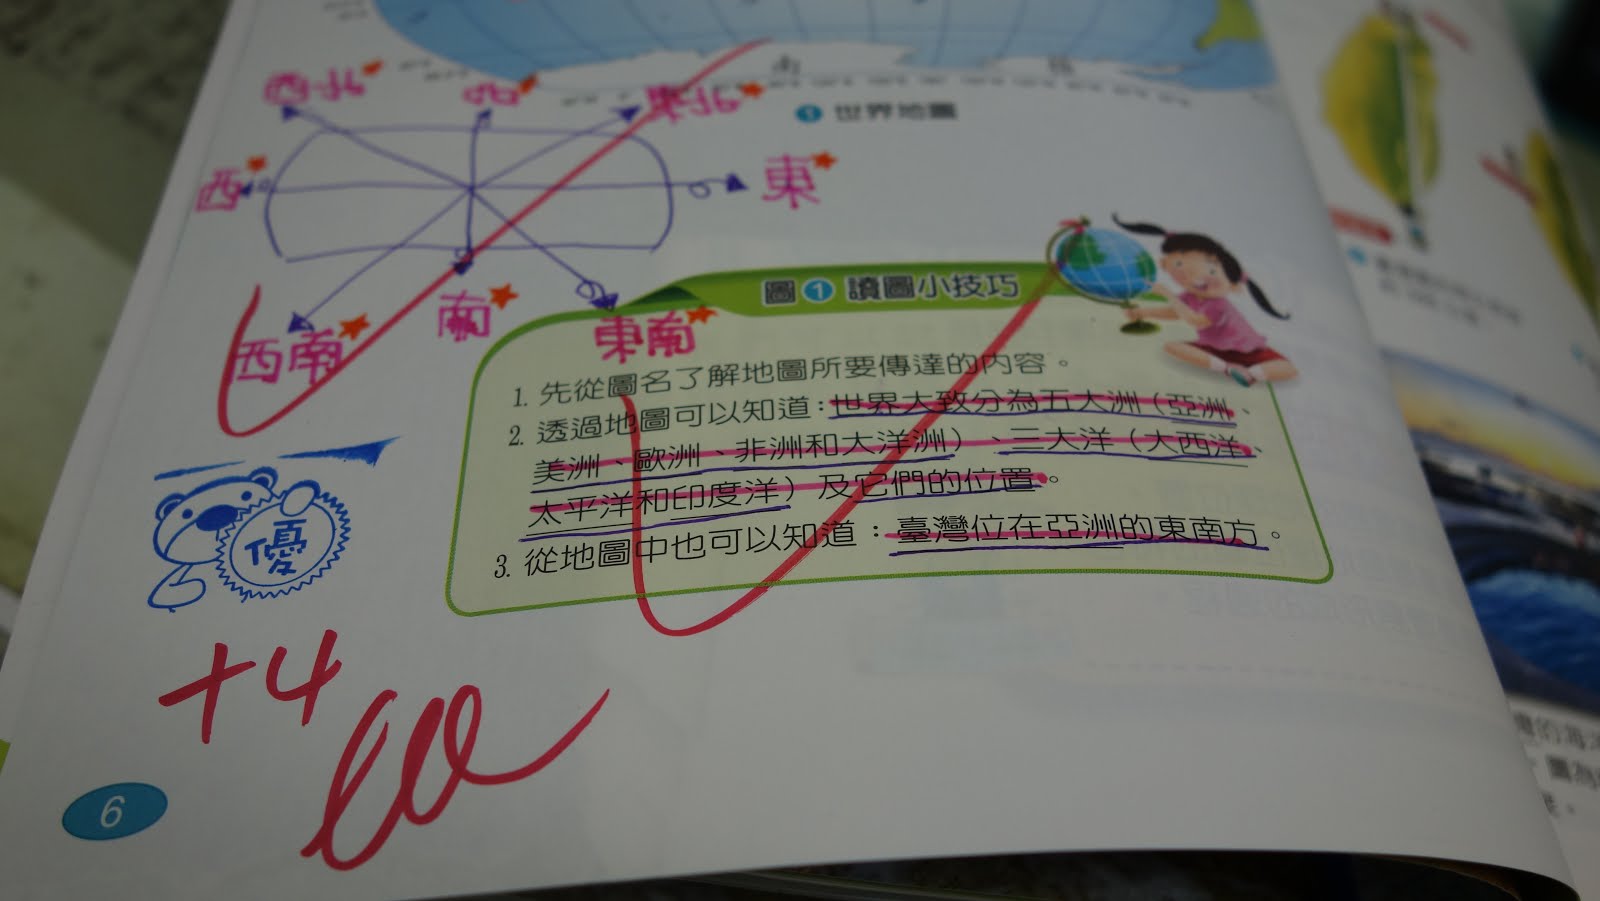 ① 世界地圖
西北 北 東北
西 東
西南 南 東南
圖① 讀圖小技巧
1. 先從圖名了解地圖所要傳達的內容。
2. 透過地圖可以知道：世界大致分為五大洲（亞洲、
美洲、歐洲、非洲和大洋洲）、三大洋（大西洋、
太平洋和印度洋）及它們的位置。
3. 從地圖中也可以知道：臺灣位在亞洲的東南方。
優
+4
6